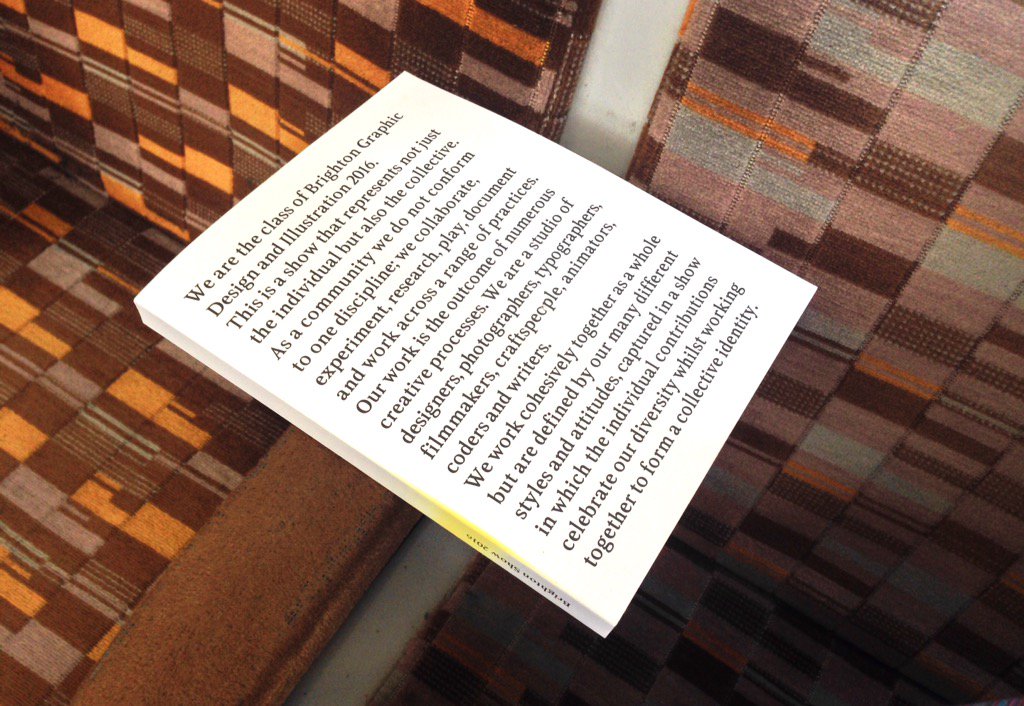 We are the class of Brighton Graphic
Design and Illustration 2016.
This is a show that represents not just
the individual but also the collective.
As a community we do not conform
to one discipline; we collaborate,
experiment, research, play, document
and work across a range of practices.
Our work is the outcome of numerous
creative processes. We are a studio of
designers, photographers, typographers,
filmmakers, craftspeople, animators,
coders and writers.
We work cohesively together as a whole
but are defined by our many different
styles and attitudes, captured in a show
in which the individual contributions
celebrate our diversity whilst working
together to form a collective identity.
Brighton Show 2016